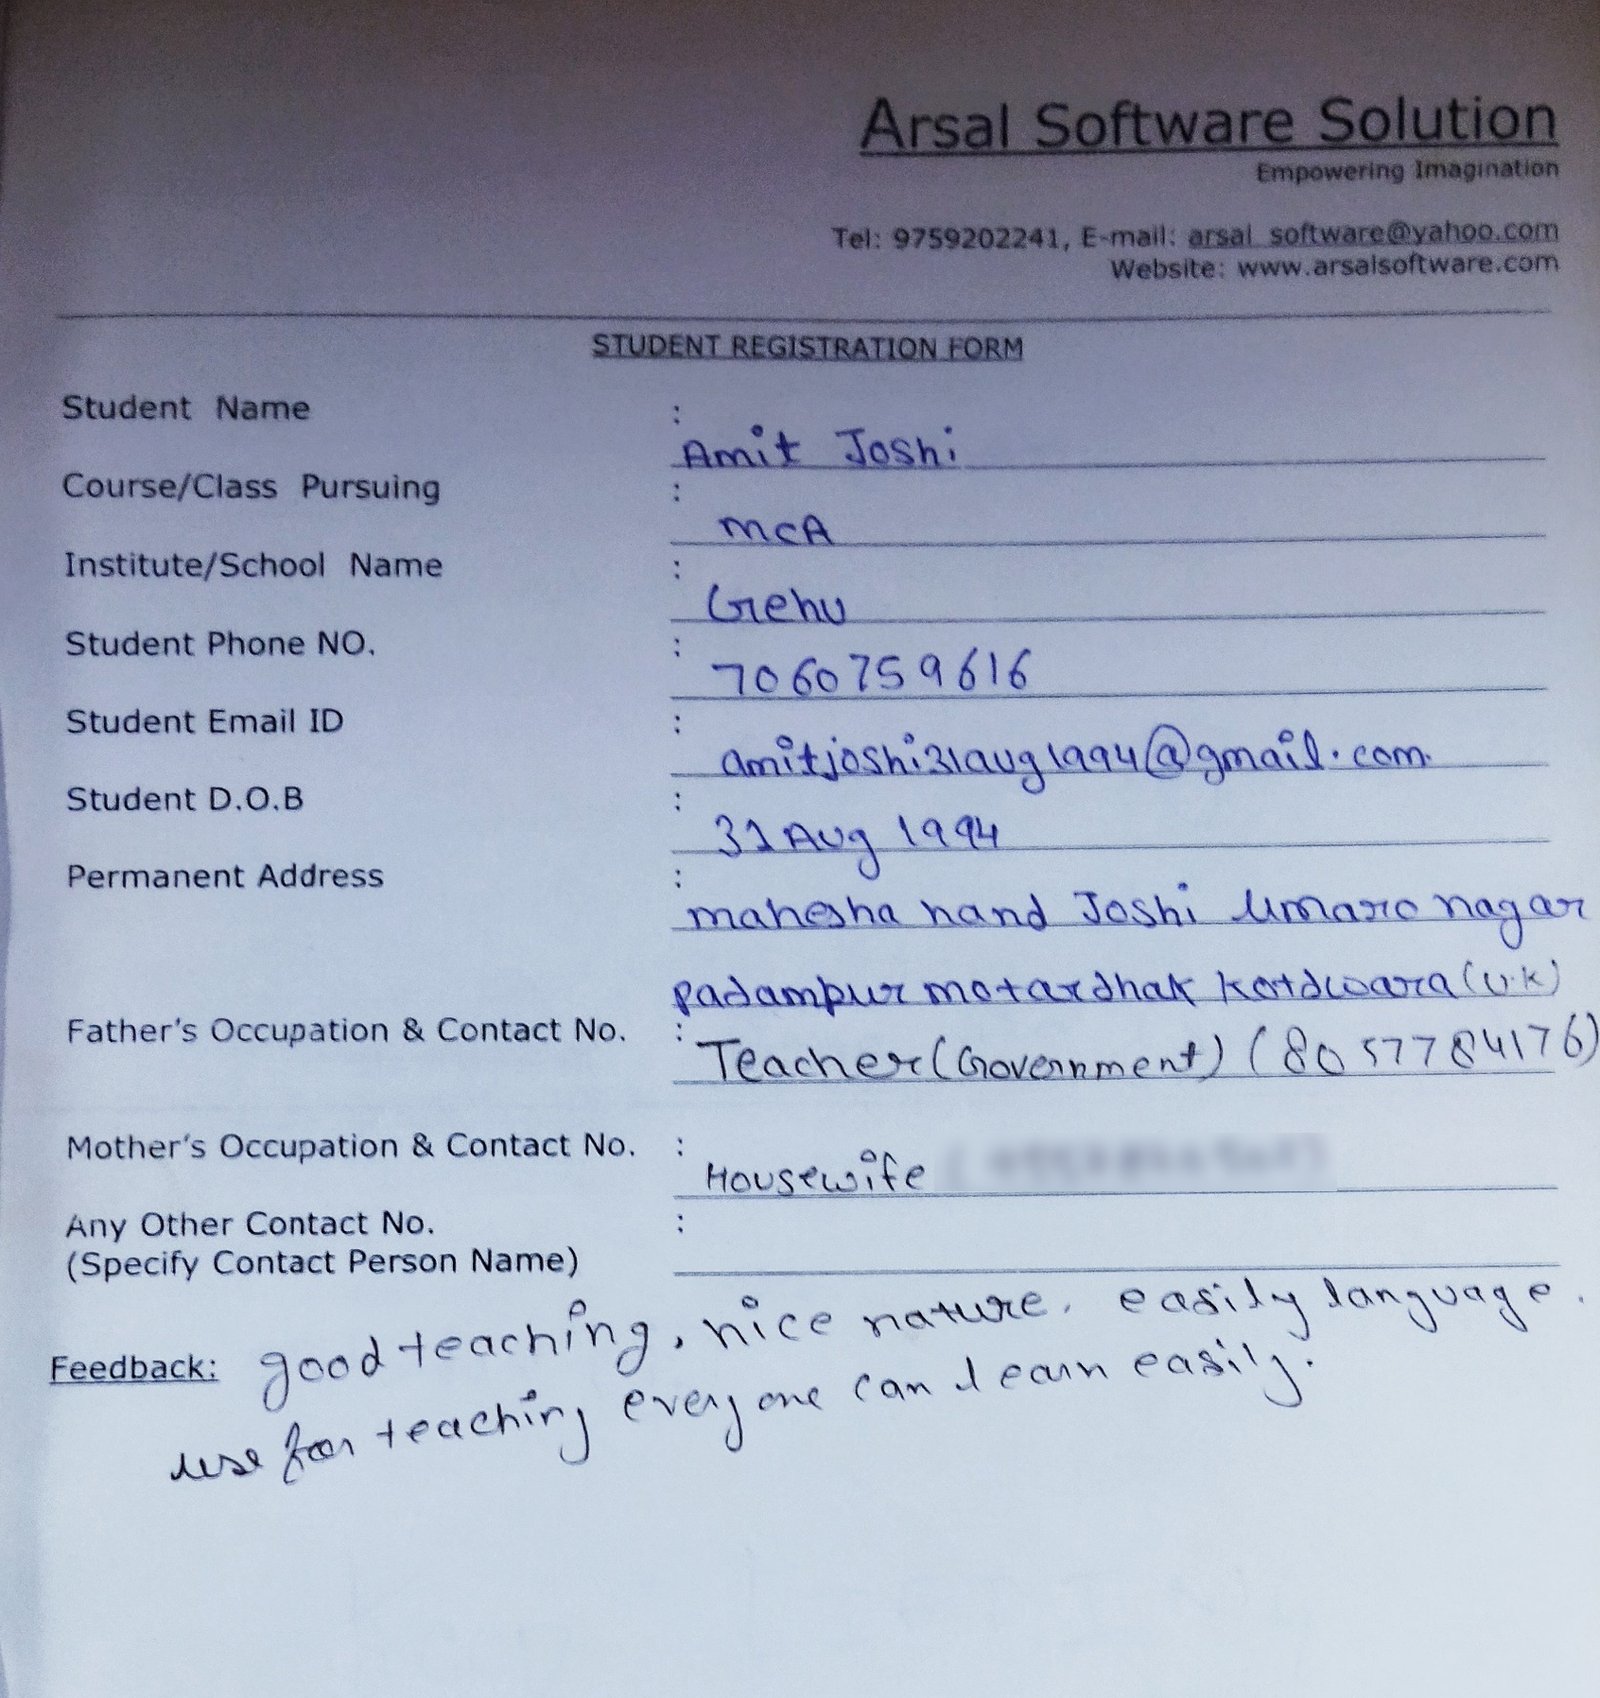 Arsal Software Solution
Empowering Imagination
Tel: 9759202241, E-mail: arsal_software@yahoo.com
Website: www.arsalsoftware.com
STUDENT REGISTRATION FORM
Student Name : Amit Joshi
Course/Class Pursuing : MCA
Institute/School Name : Gehu
Student Phone NO. : 7060759616
Student Email ID : amitjoshi31aug1994@gmail.com
Student D.O.B : 31 Aug 1994
Permanent Address : mahesha nand Joshi nagar
padampur motardhak kotdwara (U.K)
Father's Occupation & Contact No. : Teacher (Government) (8057784176)
Mother's Occupation & Contact No. : Housewife
Any Other Contact No. :
(Specify Contact Person Name)
Feedback: good teaching, nice nature. easily language.
use for teaching everyone can learn easily.